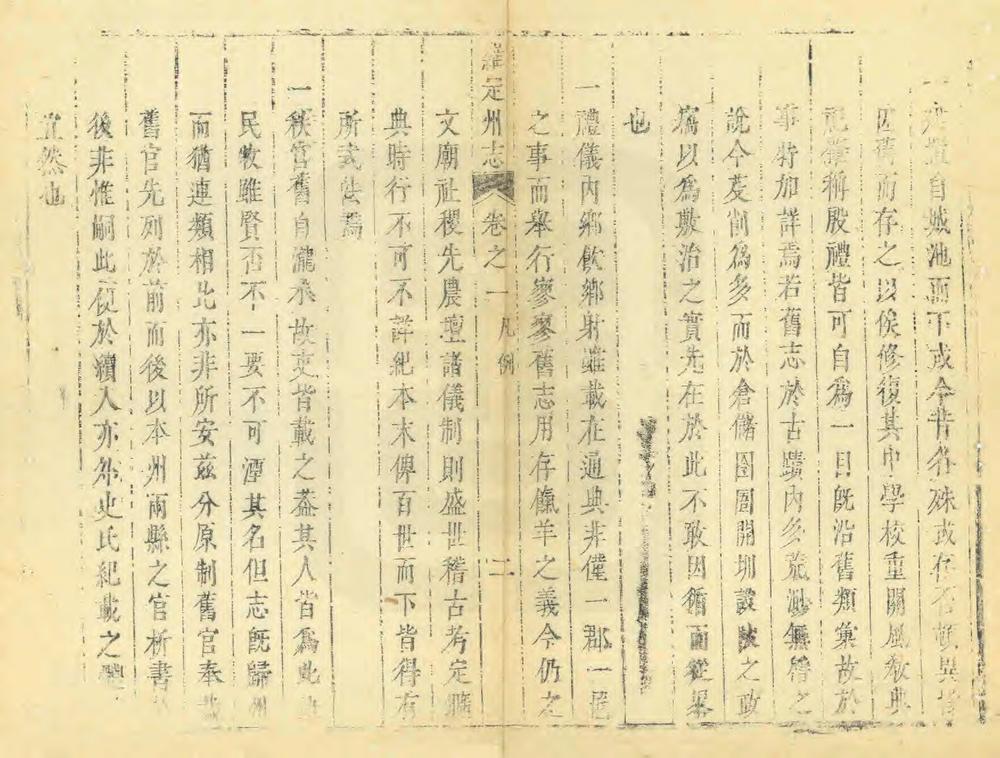 一 自城池而下或今昔各殊或存否頓異
因舊而存之以俟修復其中學校重關風教典
祀肇稱殷禮皆可自為一目既沿舊類彙故於
事特加詳焉若舊志於古蹟內多荒渺無稽之
說今芟削為多而於倉儲囹圄開圳設陂之政
寫以為敷治之實先在於此不敢因循而從畧
也
一禮儀內鄉飲鄉射雖載在通典非僅一郡一邑
之事而舉行寥寥舊志用存餼羊之義今仍之
文廟社稷先農壇諸儀制則盛世稽古考定曠
典時行不可不詳紀本末俾百世而下皆得有
所式法焉
羅定州志 卷之一 凡例 二
一秩官舊自瀧水故吏皆載之葢其人皆為此
民牧雖賢否不一要不可湮其名但志既歸州
而猶連類相比亦非所安茲分原制舊官奉裁
舊官先列於前而後以本州兩縣之官析書
後非惟嗣此 從於續入亦外史氏紀載之體
宜然也